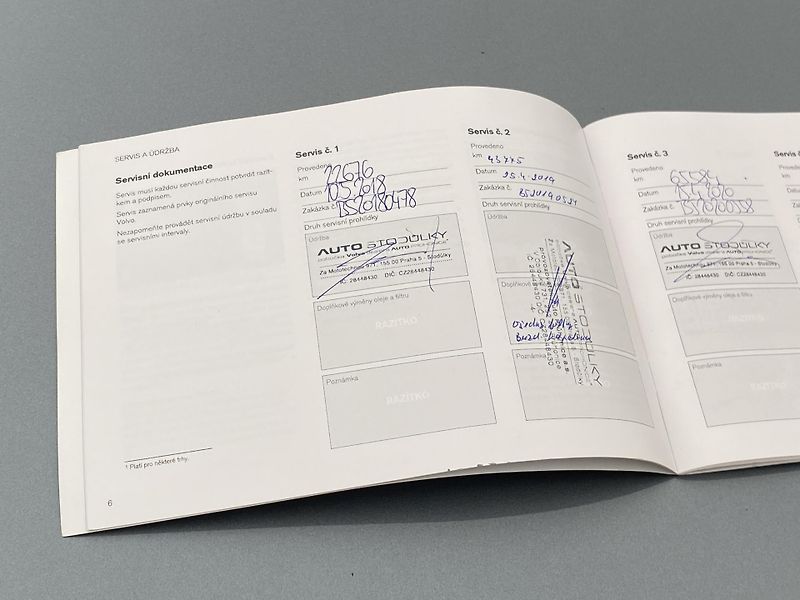 SERVIS A ÚDRŽBA
Servisní dokumentace
Servis musí každou servisní činnost potvrdit razít-
kem a podpisem.
Servis zaznamená prvky originálního servisu
Volvo.
Nezapomeňte provádět servisní údržbu v souladu
se servisními intervaly.
1 Platí pro některé trhy.
6
Servis č. 1
Provedeno
km 22676
Datum 10.5.2018
Zakázka č. BS20180478
Druh servisní prohlídky
Údržba
AUTO STODŮLKY
pobočka Volvo
Za Mototechnou 971, 155 00 Praha 5 - Stodůlky
IČ: 28448430 DIČ: CZ28448430
Doplňkové výměny oleje a filtru
RAZÍTKO
Poznámka
RAZÍTKO
Servis č. 2
Provedeno
km 43775
Datum 25.4.2019
Zakázka č.
Druh servisní prohlídky
Údržba
AUTO STODŮLKY
Doplňkové
Poznámka
Servis č. 3
Provedeno
km
Datum
Zakázka č.
Druh servisní prohlídky
Údržba
AUTO STODŮLKY
pobočka Volvo
Za Mototechnou 971, 155 00 Praha 5 - Stodůlky
IČ: 28448430 DIČ: CZ28448430
Doplňkové výměny oleje a filtru
RAZÍTKO
Poznámka
RAZÍTKO
Servis č.
Provedeno
km
Datum
Zakázka
Druh
Údržba